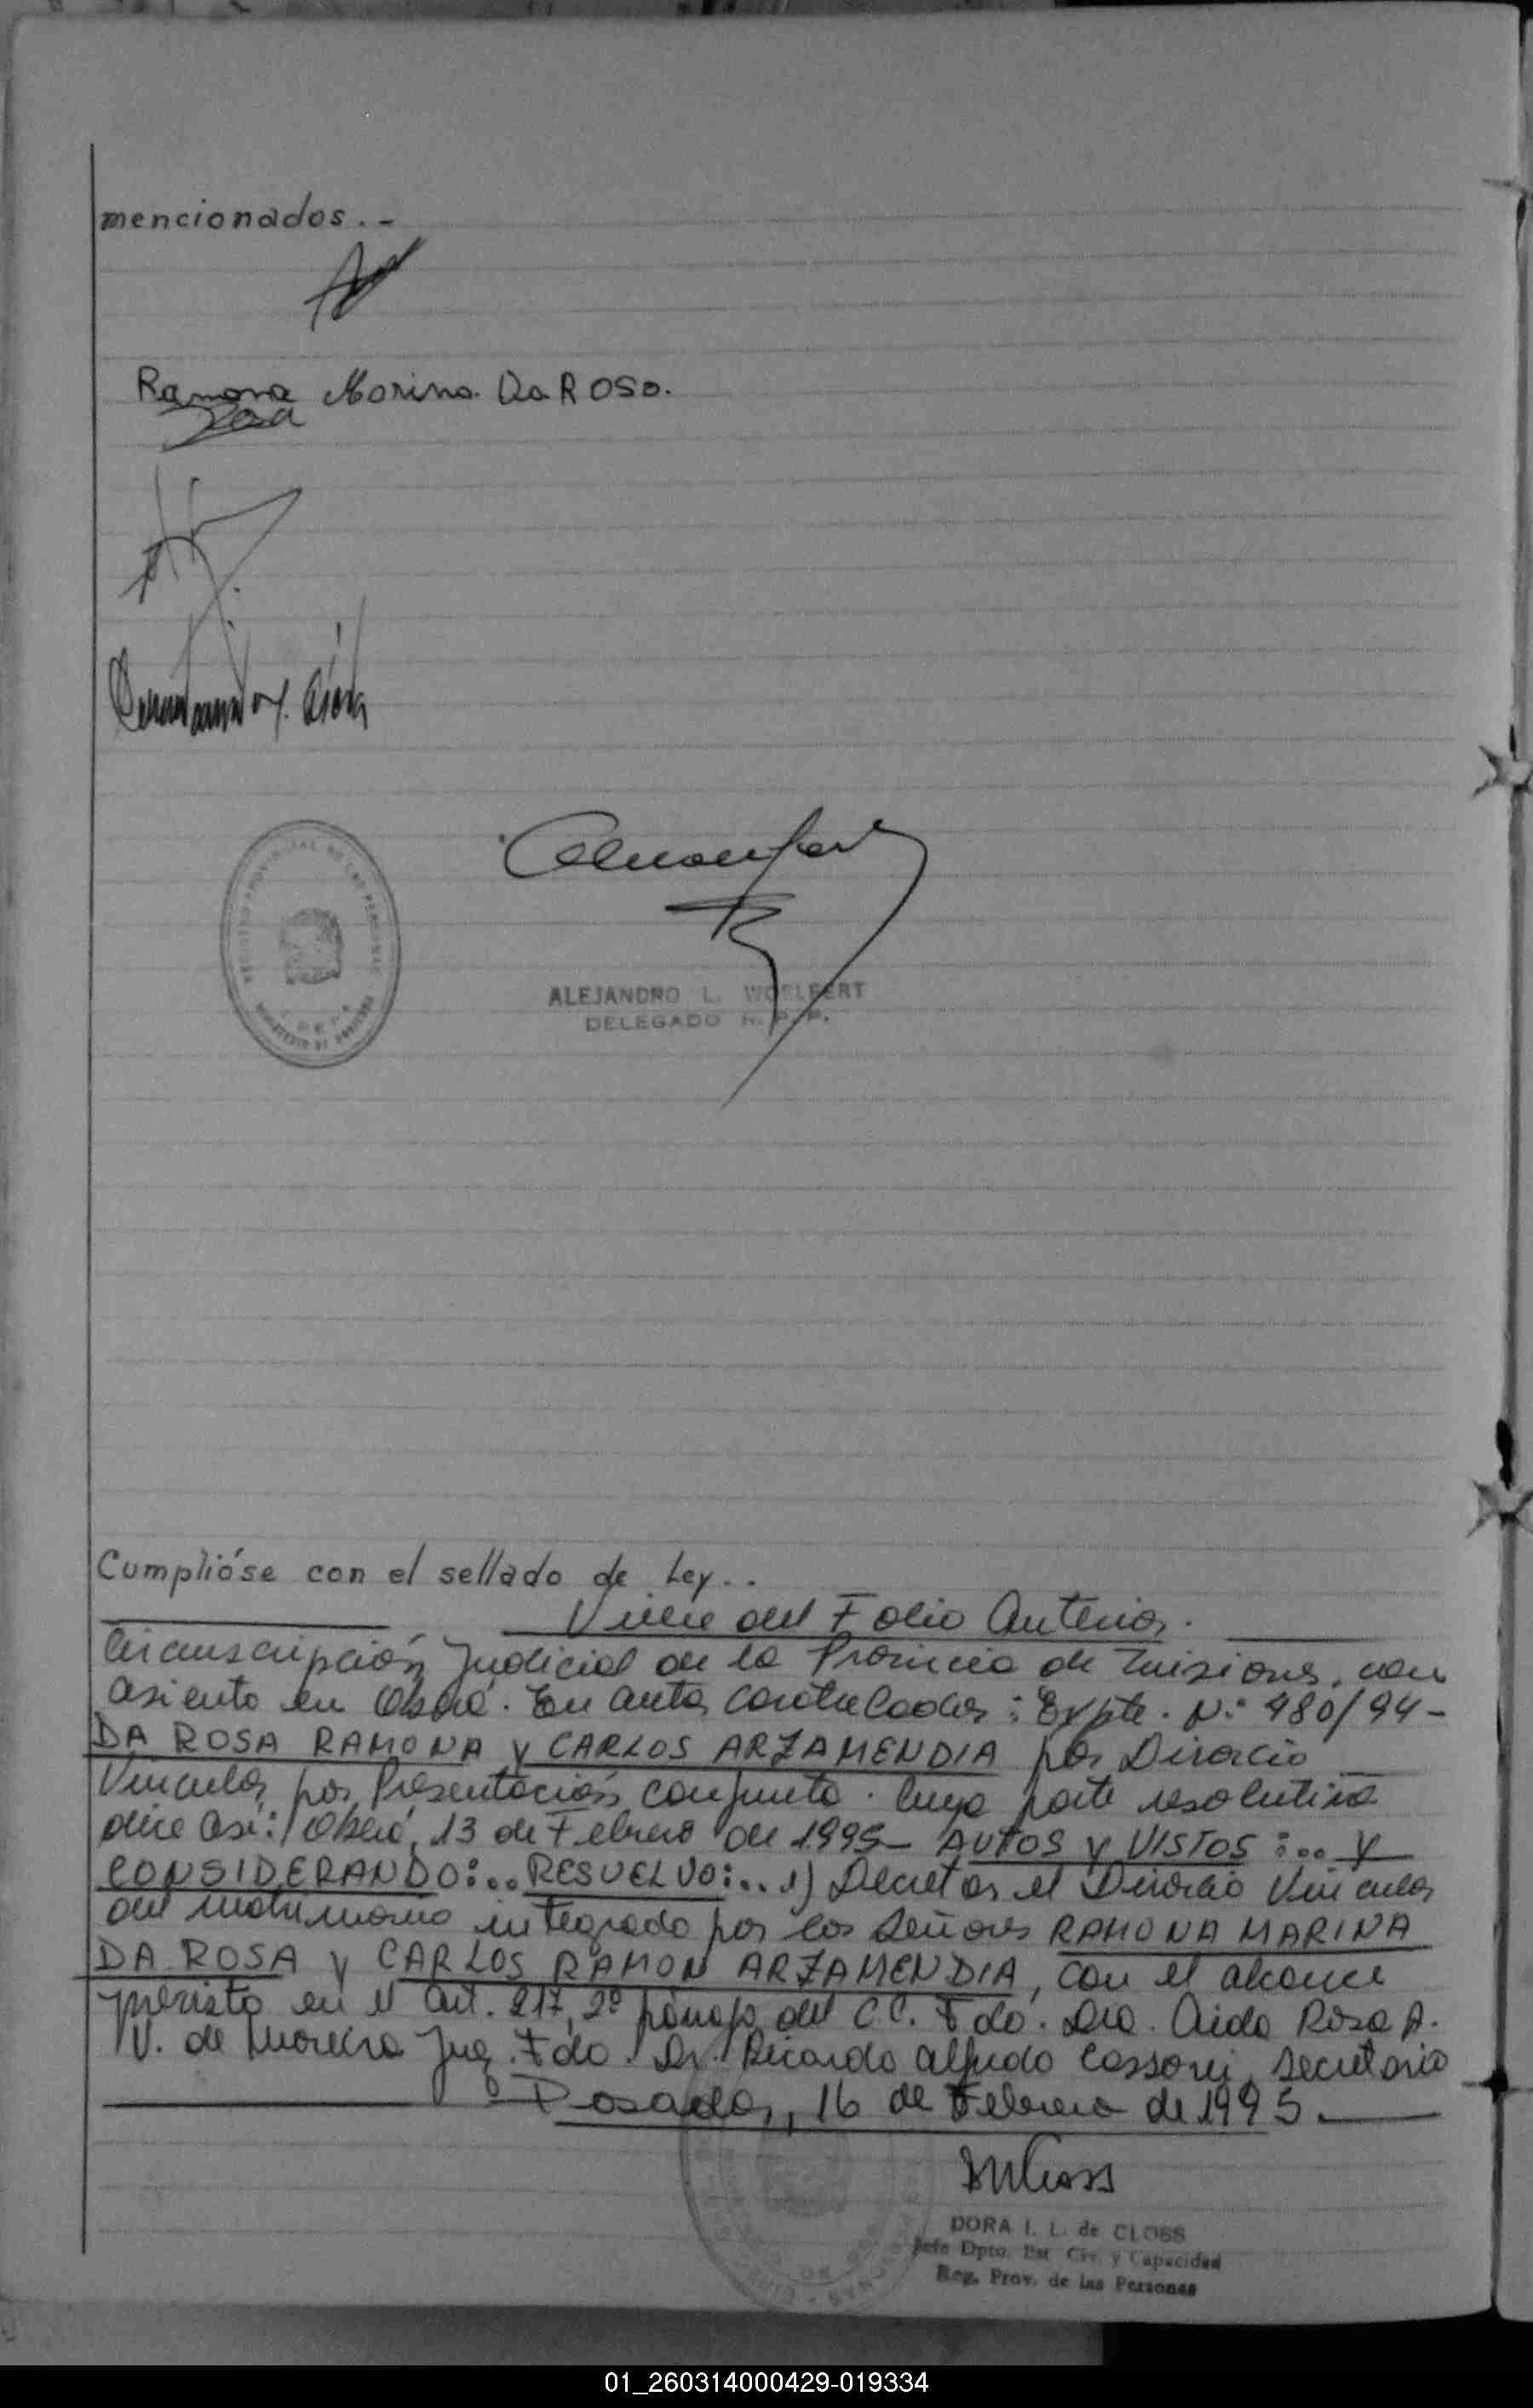 mencionados.-
Ramona Marina Da Rosa.
REGISTRO PROVINCIAL DE LAS PERSONAS
MINISTERIO DE GOBIERNO
ALEJANDRO L. WOELFERT
DELEGADO R. P. P.
Cumplióse con el sellado de Ley..
Viene del Folio Anterior.
Circunscripción Judicial de la Provincia de Misiones, con
asiento en Oberá. En autos caratulados: Expte. Nº 480/94-
DA ROSA RAMONA y CARLOS ARZAMENDIA por Divorcio
Vincular por Presentación conjunta. Cuya parte resolutiva
dice así:/ Oberá, 13 de Febrero de 1995- AUTOS y VISTOS:.. y
CONSIDERANDO:.. RESUELVO:.. 1) Decretar el Divorcio Vincular
del matrimonio integrado por los Señores RAMONA MARINA
DA ROSA y CARLOS RAMON ARZAMENDIA, con el alcance
previsto en el art. 217, 2º párrafo del C.C. Fdo. Dra. Aida Rosa A.
V. de Moreira Juez. Fdo. Dr. Ricardo Alfredo Cassoni, Secretario
Posadas, 16 de Febrero de 1995.
DORA I. L. de CLOSS
Jefe Dpto. Est Civ. y Capacidad
Reg. Prov. de las Personas
01_260314000429-019334